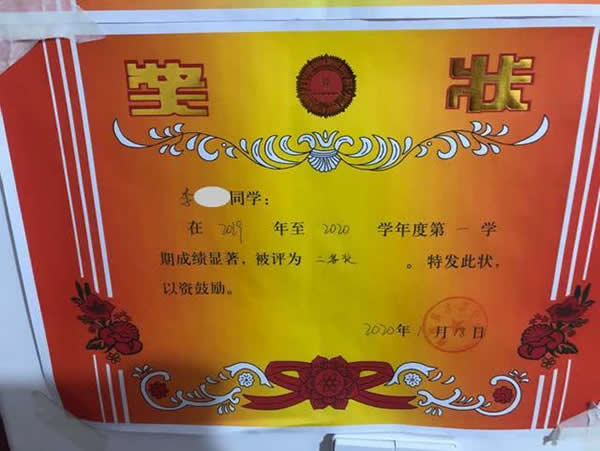 奖状
李 同学:
在 2019 年至 2020 学年度第 一 学
期成绩显著,被评为 二等奖 。特发此状,
以资鼓励。
2020年 1 月 18 日